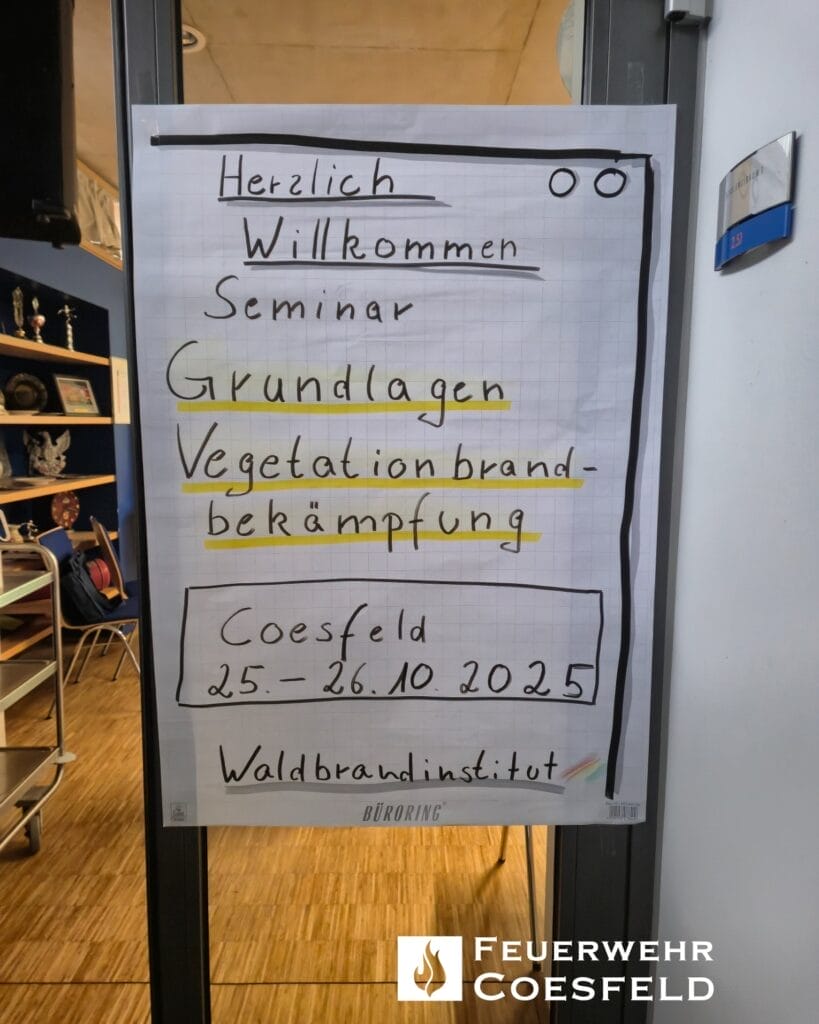 Herzlich
Willkommen
Seminar
Grundlagen
Vegetationbrand-
bekämpfung
Coesfeld
25. – 26.10.2025
Waldbrandinstitut
BÜRORING
FEUERWEHR
COESFELD